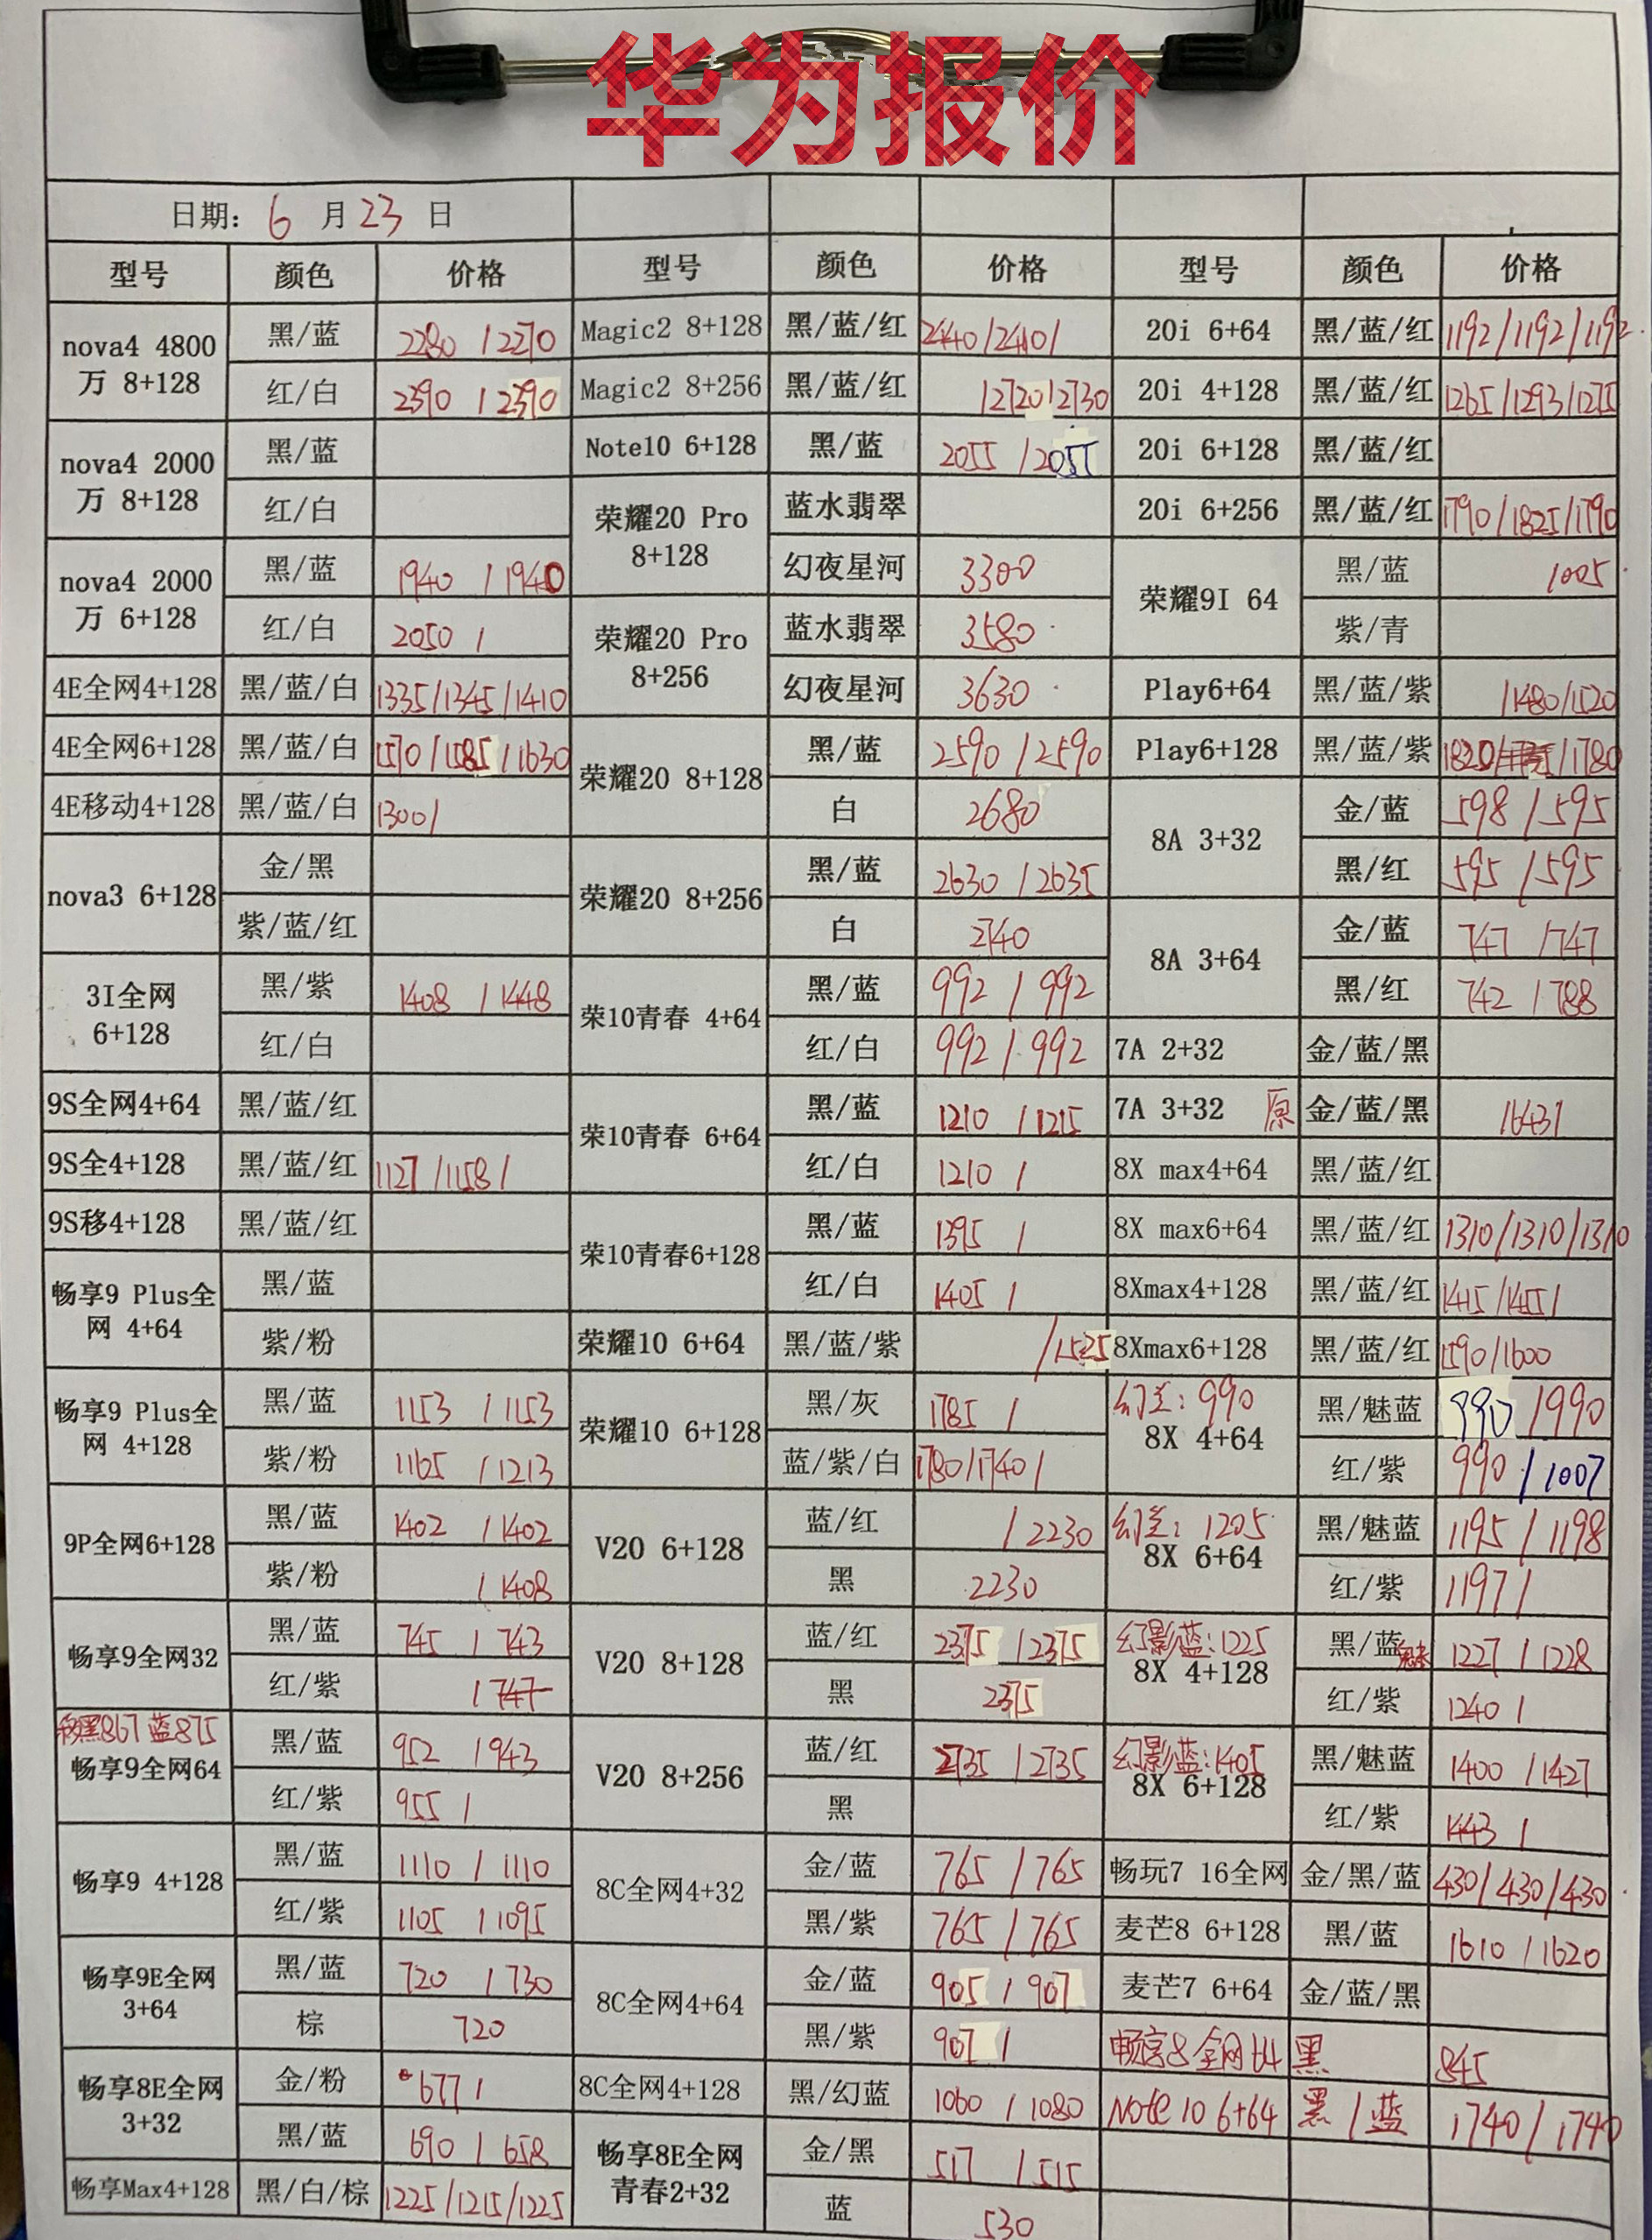 华为报价
日期: 6 月 23 日
型号 颜色 价格 型号 颜色 价格 型号 颜色 价格
nova4 4800万 8+128 黑/蓝 2280 / 2270 Magic2 8+128 黑/蓝/红 2440/2440/ 20i 6+64 黑/蓝/红 1192/1192/1192
红/白 2390 / 2390 Magic2 8+256 黑/蓝/红 /2720/2730 20i 4+128 黑/蓝/红 1265/1293/1275
nova4 2000万 8+128 黑/蓝 Note10 6+128 黑/蓝 2055 / 2055 20i 6+128 黑/蓝/红
红/白 荣耀20 Pro 8+128 蓝水翡翠 20i 6+256 黑/蓝/红 1790/1825/1790
nova4 2000万 6+128 黑/蓝 1940 / 1940 幻夜星河 3300 荣耀9I 64 黑/蓝 1005
红/白 2050 / 荣耀20 Pro 8+256 蓝水翡翠 3580 紫/青
4E全网4+128 黑/蓝/白 1335/1345/1410 幻夜星河 3630 Play6+64 黑/蓝/紫 /1480/1520
4E全网6+128 黑/蓝/白 1570/1585/1630 荣耀20 8+128 黑/蓝 2590 / 2590 Play6+128 黑/蓝/紫 1820/ /1780
4E移动4+128 黑/蓝/白 1300/ 白 2680 8A 3+32 金/蓝 598 / 595
nova3 6+128 金/黑 荣耀20 8+256 黑/蓝 2630 / 2635 黑/红 595 / 595
紫/蓝/红 白 2740 8A 3+64 金/蓝 747 / 747
3I全网 6+128 黑/紫 1408 / 1448 荣10青春 4+64 黑/蓝 992 / 992 黑/红 742 / 788
红/白 红/白 992 / 992 7A 2+32 金/蓝/黑
9S全网4+64 黑/蓝/红 荣10青春 6+64 黑/蓝 1210 / 1215 7A 3+32 原 金/蓝/黑 /643/
9S全4+128 黑/蓝/红 1127/1158/ 红/白 1210 / 8X max4+64 黑/蓝/红
9S移4+128 黑/蓝/红 荣10青春6+128 黑/蓝 1395 / 8X max6+64 黑/蓝/红 1310/1310/1310
畅享9 Plus全网 4+64 黑/蓝 红/白 1405 / 8Xmax4+128 黑/蓝/红 1415/1455/
紫/粉 荣耀10 6+64 黑/蓝/紫 /1525 8Xmax6+128 黑/蓝/红 1590/1600
畅享9 Plus全网 4+128 黑/蓝 1153 / 1153 荣耀10 6+128 黑/灰 1785 / 幻兰: 990 8X 4+64 黑/魅蓝 990 / 990
紫/粉 1165 / 1213 蓝/紫/白 1780/1740/ 红/紫 990 / 1007
9P全网6+128 黑/蓝 1402 / 1402 V20 6+128 蓝/红 / 2230 幻兰: 1205 8X 6+64 黑/魅蓝 1195 / 1198
紫/粉 / 1408 黑 2230 红/紫 1197 /
畅享9全网32 黑/蓝 745 / 743 V20 8+128 蓝/红 2375 / 2375 幻影蓝:1225 8X 4+128 黑/蓝 魅 1227 / 1228
红/紫 / 747 黑 2375 红/紫 1240 /
移黑867 蓝875 畅享9全网64 黑/蓝 952 / 943 V20 8+256 蓝/红 2735 / 2735 幻影蓝:1405 8X 6+128 黑/魅蓝 1400 / 1427
红/紫 955 / 黑 红/紫 1443 /
畅享9 4+128 黑/蓝 1110 / 1110 8C全网4+32 金/蓝 765 / 765 畅玩7 16全网 金/黑/蓝 430/430/430
红/紫 1105 / 1095 黑/紫 765 / 765 麦芒8 6+128 黑/蓝 1610 / 1620
畅享9E全网 3+64 黑/蓝 720 / 730 8C全网4+64 金/蓝 905 / 907 麦芒7 6+64 金/蓝/黑
棕 720 黑/紫 907 / 畅享8全网64 黑 845
畅享8E全网 3+32 金/粉 677 / 8C全网4+128 黑/幻蓝 1060 / 1080 Note 10 6+64 黑 / 蓝 1740 / 1740
黑/蓝 690 / 658 畅享8E全网青春2+32 金/黑 517 / 515
畅享Max4+128 黑/白/棕 1225/1215/1225 蓝 530